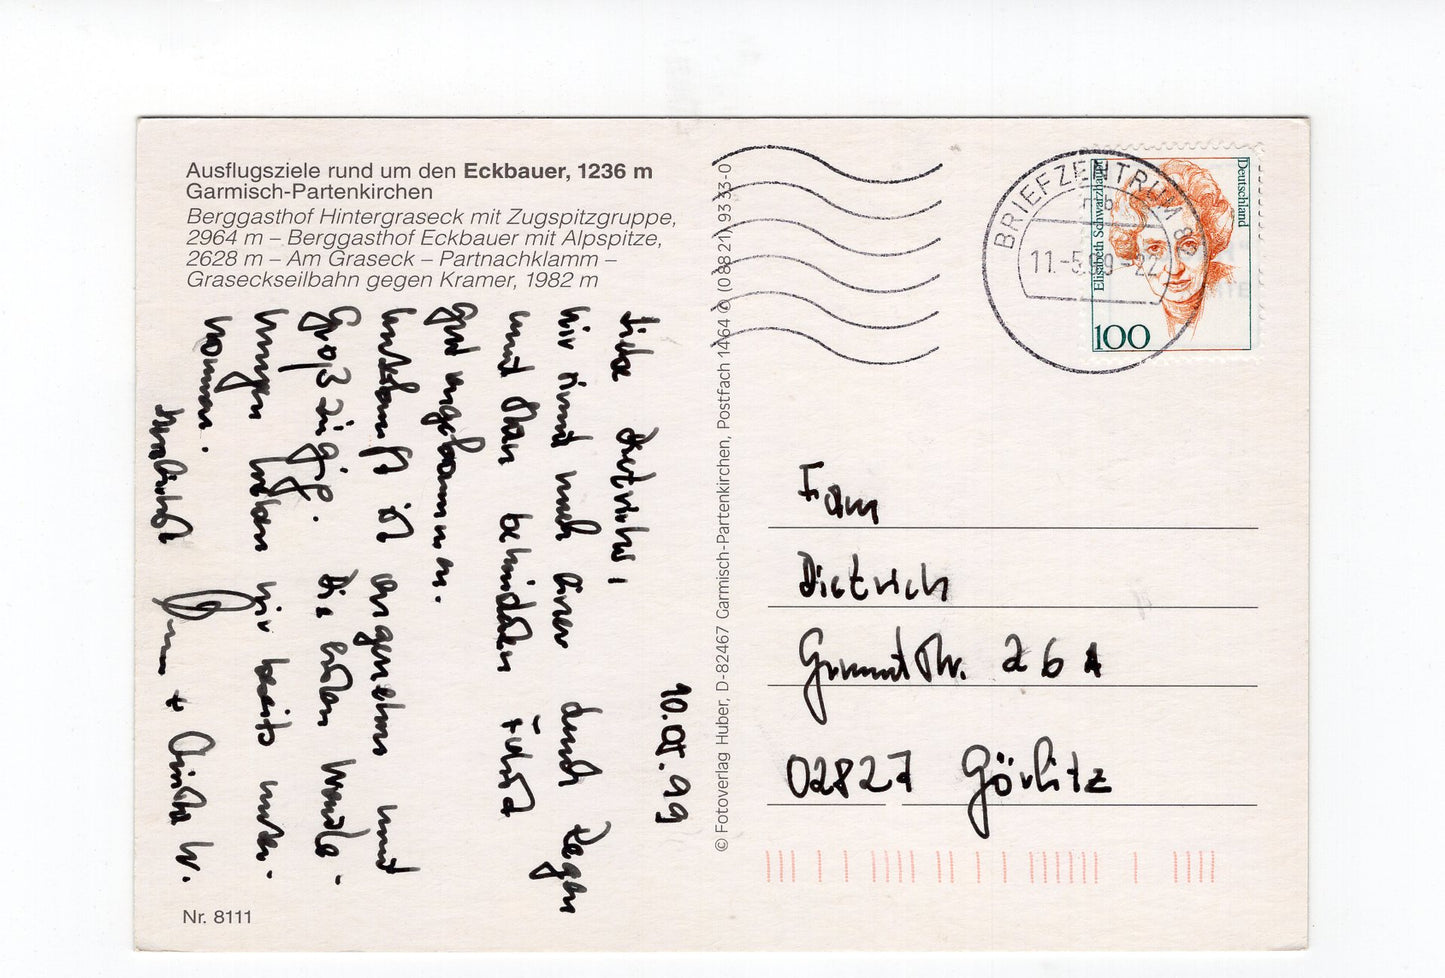 Ausflugsziele rund um den Eckbauer, 1236 m
Garmisch-Partenkirchen
Berggasthof Hintergraseck mit Zugspitzgruppe,
2964 m – Berggasthof Eckbauer mit Alpspitze,
2628 m – Am Graseck – Partnachklamm –
Graseckseilbahn gegen Kramer, 1982 m
10.05.99
Liebe Dietrichs,
wir sind nach einer durch Regen
und Stau behinderten Fahrt
gut angekommen.
Unterkunft ist angenehm und
großzügig. Die ersten Wande-
rungen haben wir bereits unter-
nommen.
Herzlichst
+ W.
Nr. 8111
© Fotoverlag Huber, D-82467 Garmisch-Partenkirchen, Postfach 1464 ✆ (0 88 21) 93 33-0
BRIEFZENTRUM 82
mb
11.-5.99-22
Deutschland
Elisabeth Schwarzhaupt
100
Fam
Dietrich
26 A
02827 Görlitz